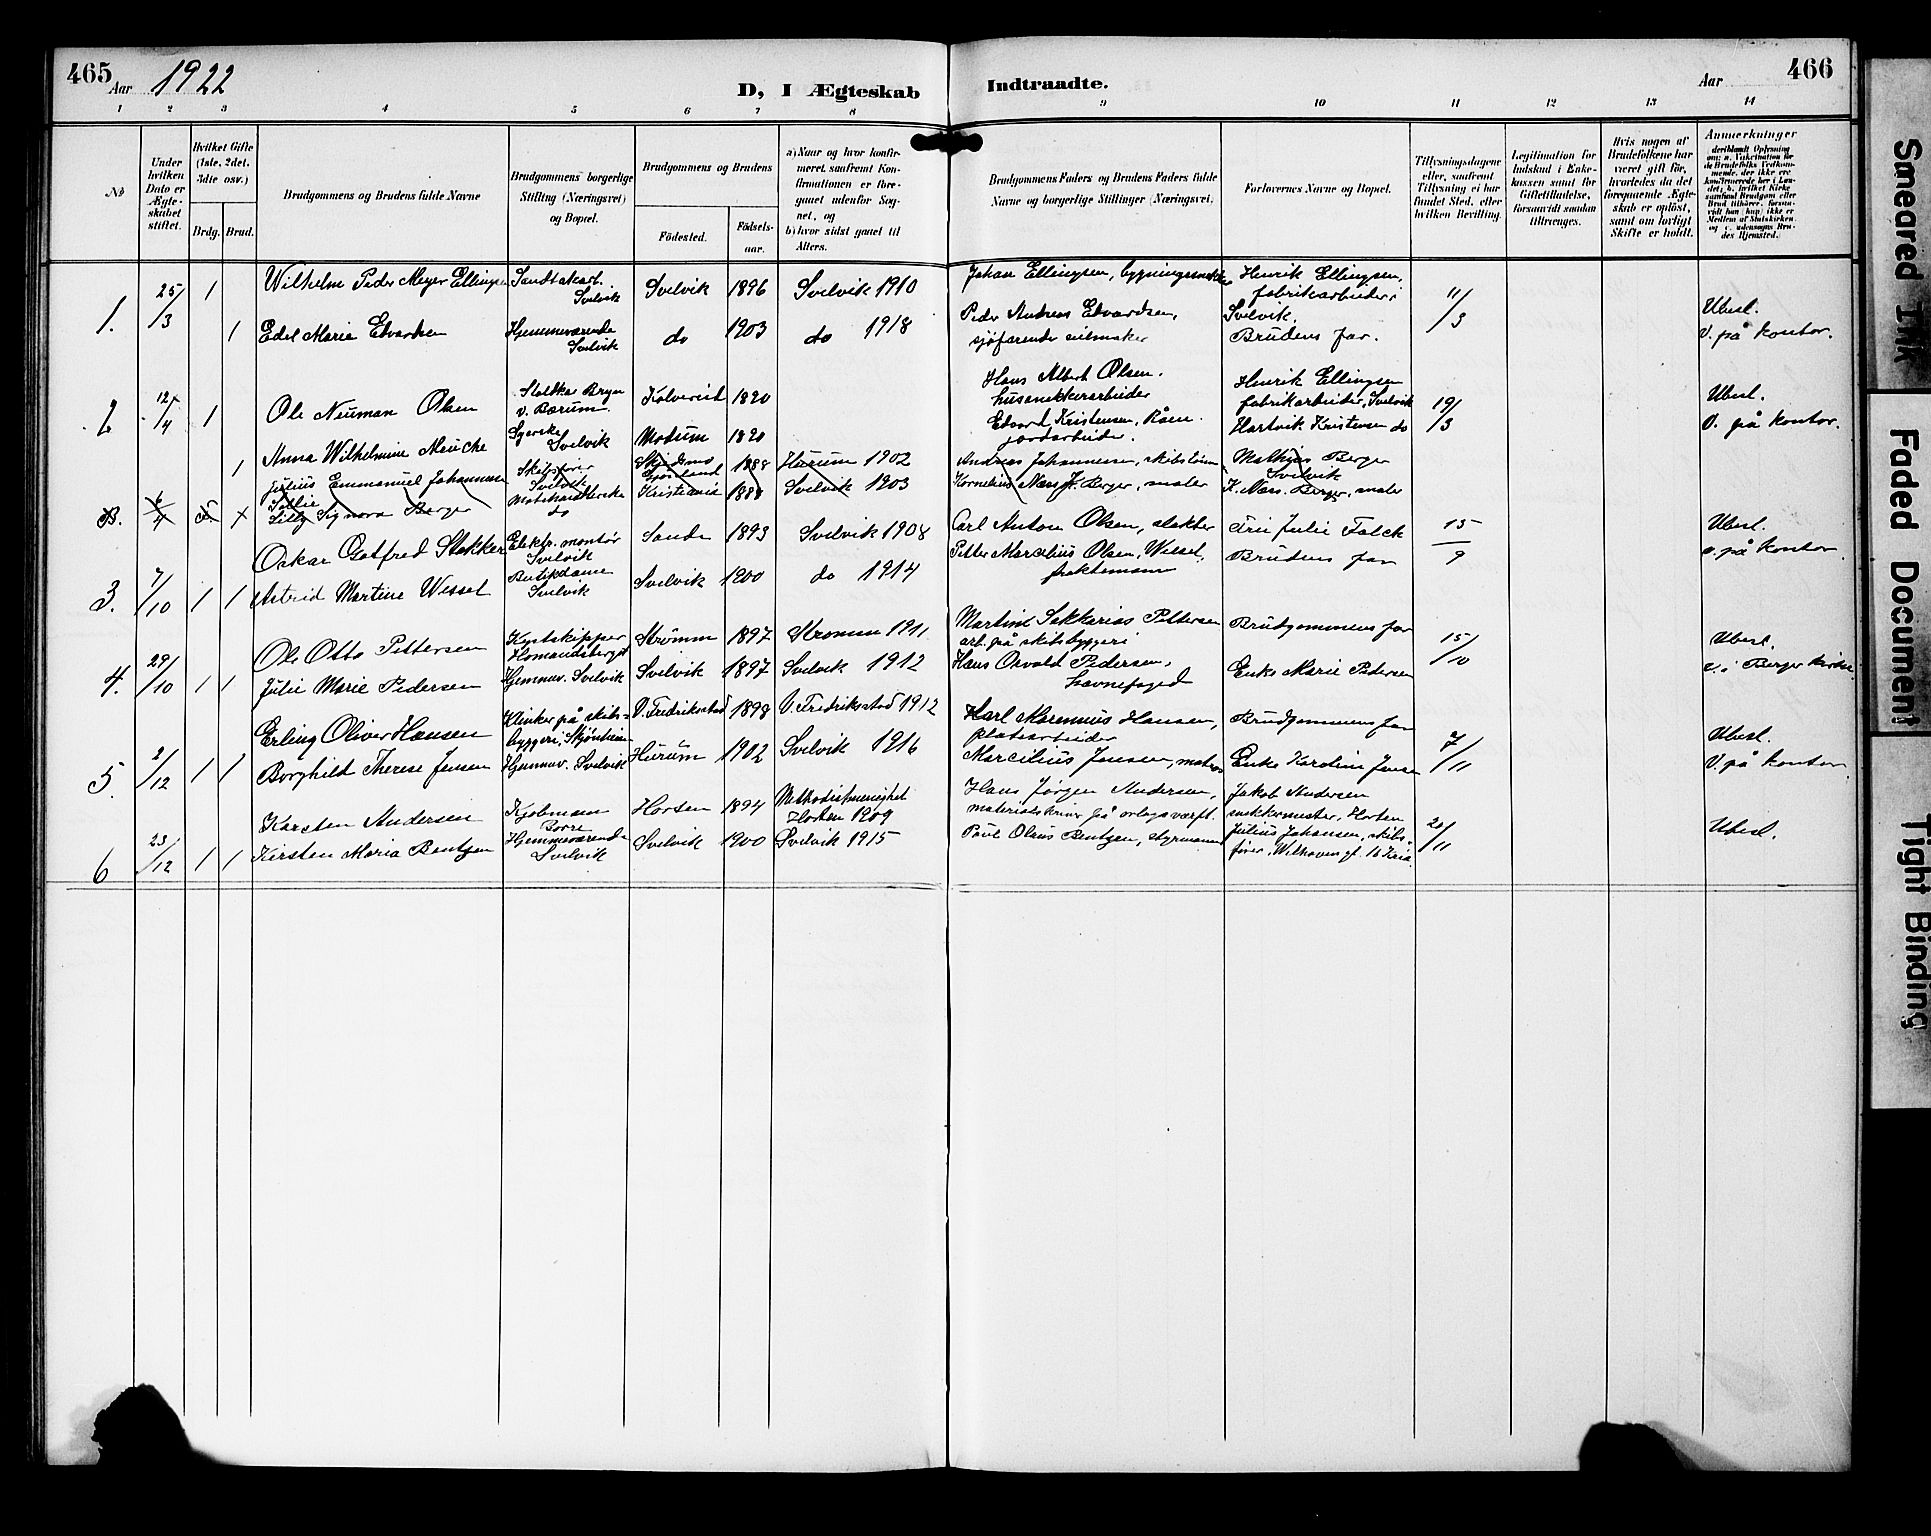 465 Aar 1922
D, I Ægteskab
Indtraadte.
Aar 466
1 2 3 4 5 6 7 8
9 10 11 12 13 14
No
Under hvilken Dato er Ægteskabet stiftet.
Hvilket Gifte (1ste, 2det, 3dte osv.)
Brdg. Brud.
Brudgommens og Brudens fulde Navne
Brudgommens borgerlige Stilling (Næringsvei) og Bopæl.
Brudgommens og Brudens
Födested.
Födselsaar.
a) Naar og hvor konfirmeret, saafremt Konfirmationen er foregaaet udenfor Sognet, og
b) hvor sidst gaaet til Alters.
Brudgommens Faders og Brudens Faders fulde Navne og borgerlige Stillinger (Næringsvei)
Forlovernes Navne og Bopæl.
Tillysningsdagene eller, saafremt Tillysning ei har fundet Sted, efter hvilken Bevilling.
Legitimation for Indskud i Enkekassen samt for Giftetilladelse, forsaavidt saadan tiltrænges.
Hvis nogen af Brudefolkene har været gift før, hvorledes da det foregaaende Ægteskab er opløst, samt om lovligt Skifte er holdt.
Anmerkninger
1. 25/3 1 Wilhelm Peder Meyer Ellingsen Sandtakarb. Svelvik Svelvik 1896 Svelvik 1910 Johan Ellingsen, bygningssnekker Henrik Ellingsen, fabrikarbeider i Svelvik. 11/3 Ubesl.
1 Edel Marie Edvardsen Hjemmeværende Svelvik do 1903 do 1918 Peder Andreas Edvardsen, sjøfarende seilmaker Brudens far. V. på kontor.
2 12/4 1 Ole Neuman Olsen Staldkar Bryn v. Bærum Kolvereid 1890 Hans Albert Olsen, hussnekkerarbeider Henrik Ellingsen fabrikarbeider, Svelvik 19/3 Ubesl.
1 Anna Wilhelmine Meucke Syerske Svelvik Modum 1890 Edvard Kristensen, Råen jordarbeider. Hartvik Kristensen do V. på kontor.
3. 6/4 Julius Emmanuel Johannesen Skibsfører Svelvik 1888 Hurum 1902 Andreas Johannesen, Mathys Berger Svelvik
Lilly Signora Berger Motehandlerske do Kristiania 1888 Svelvik 1903 Kornelius Næss Berger, maler K. Næss. Berger, maler
3. 7/10 1 Oskar Gotfred Stokker Elektr. montør Svelvik Sande 1893 Svelvik 1908 Carl Anton Olsen, slakter Fru Julie Falck 15/9 Ubesl.
1 Astrid Martine Wessel Butikdame Svelvik Svelvik 1900 do 1914 Petter Marcelius Olsen Wessel, fraktemann Brudens far v. på kontor
4. 29/10 1 Ole Otto Pettersen Kystskipper Homandsberget Strømm 1897 Strømm 1911 Martin Sakkarias Pettersen arb. på skibsbyggeri Brudgommens far 15/10 Ubesl.
1 Julie Marie Pedersen Hjemmev. Svelvik Svelvik 1897 Svelvik 1912 Hans Osvald Pedersen, havnefoged Enke Marie Pedersen v. i Berger kirke
5. 2/12 1 Erling Oliver Hansen Klinker på skibsbyggeri, V. Fredriksstad 1898 V. Fredriksstad 1912 Karl Marennius Hansen, platearbeider Brudgommens far 7/11 Ubesl.
1 Borghild Therese Jensen Hjemmev. Svelvik Hurum 1902 Svelvik 1916 Marcilius Jensen, matros Enke Karoline Jensen V. på kontor
6 23/12 1 Karsten Andersen Kjøbmann Borre Horten 1894 Methodistmenighet Horten 1909 Hans Jørgen Andersen, materialskriver på orlogsværft. Jakob Andersen snekkermester, Horten 20/11 Ubesl.
1 Kirsten Maria Bentzen Hjemmeværende Svelvik Svelvik 1900 Svelvik 1915 Paul Olaus Bentzen, styrmann Julius Johansen, skibsfører, gt. 16 Kr.ia
Smeared Ink
Faded Document
Tight Binding